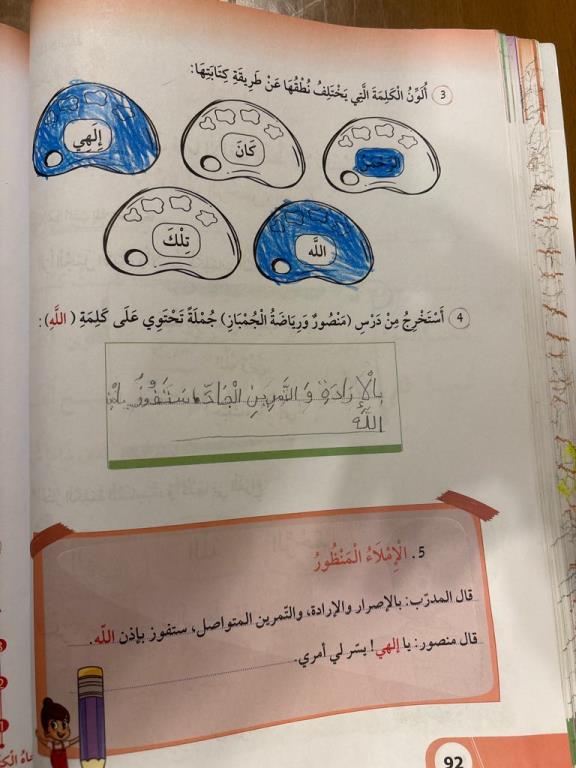 3 أُلَوِّنُ الْكَلِمَةَ الَّتِي يَخْتَلِفُ نُطْقُهَا عَنْ طَرِيقَةِ كِتَابَتِهَا:
الرَّحْمَن
كَانَ
إِلَهِي
اللَّه
تِلْكَ
4 أَسْتَخْرِجُ مِنْ دَرْسِ (مَنْصُورٌ وَرِيَاضَةُ الْجُمْبَازِ) جُمْلَةً تَحْتَوِي عَلَى كَلِمَةِ ( اللَّهِ):
بِالْإِرَادَةِ وَ التَّمْرِينِ الْجَادِّ سَتَفُوزُ بِإِذْنِ
اللَّه
5. الْإِمْلَاءُ الْمَنْظُورُ
قال المدرّب: بالإصرار والإرادة، والتّمرين المتواصل، ستفوز بإذن اللّه.
قال منصور: يا إلهي! يسّر لي أمري.
92